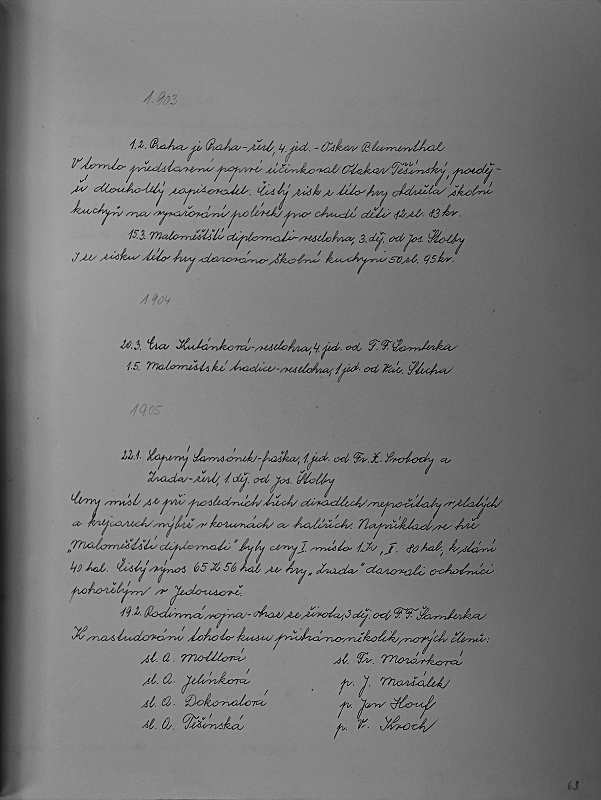 1.903
1.2. Praha je Praha - žert, 4 jed. - Oskar Blumenthal
V tomto představení poprvé účinkoval Otakar Těšínský, pozděj-
ší dlouholetý zapisovatel. Čistý zisk z této hry obdržela školní
kuchyň na vyvařování polévek pro chudé děti 12 zl. 83 kr.
15.3. Maloměštští diplomati - veselohra, 3 děj. od Jos. Štolby
I ze zisku této hry darováno školní kuchyni 50 zl. 95 kr.
1904
20.3. Eva Kutánková - veselohra, 4 jed. od F. F. Šamberka
1.5. Maloměstské tradice - veselohra, 1 jed. od Václ. Štecha
1905
22.1. Lapený Samsónek - fraška, 1 jed. od Fr. X. Svobody a
Zrada - žert, 1 děj. od Jos. Štolby
Ceny míst se při posledních třech divadlech nepočítaly v zlatých
a krejcarech nýbrž v korunách a haléřích. Například ve hře
„Maloměštští diplomati" byly ceny I. místo 1 K, II. 80 hal, k stání
40 hal. Čistý výnos 65 K 56 hal ze hry „Zrada" darovali ochotníci
pohořelým v Jedousově.
19.2. Rodinná vojna - obraz ze života, 3 děj. od F. F. Šamberka
K nastudování tohoto kusu přibráno několik nových členů:
sl. A. Mottlová sl. Fr. Morávková
sl. A. Jelínková p. J. Maršálek
sl. A. Dokonalová p. Jan Houf
sl. A. Těšínská p. V. Kroch
63